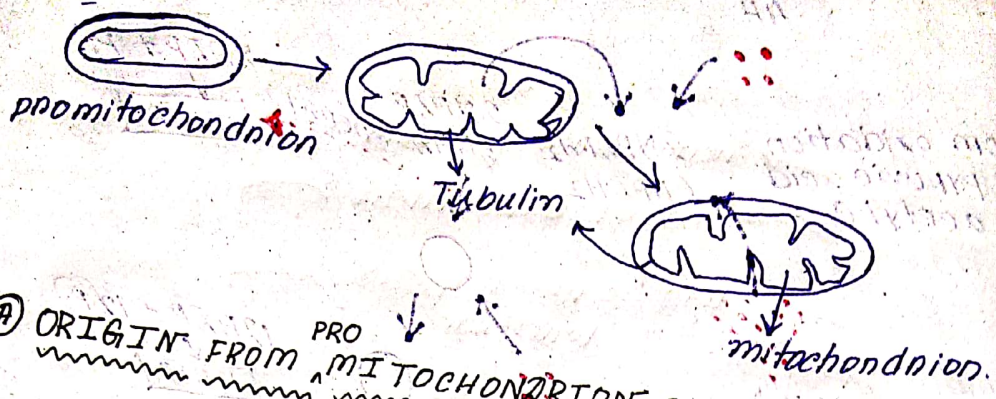 promitochondrion
Tubulin
mitochondrion.
Ⓐ ORIGIN FROM PRO MITOCHONDRION